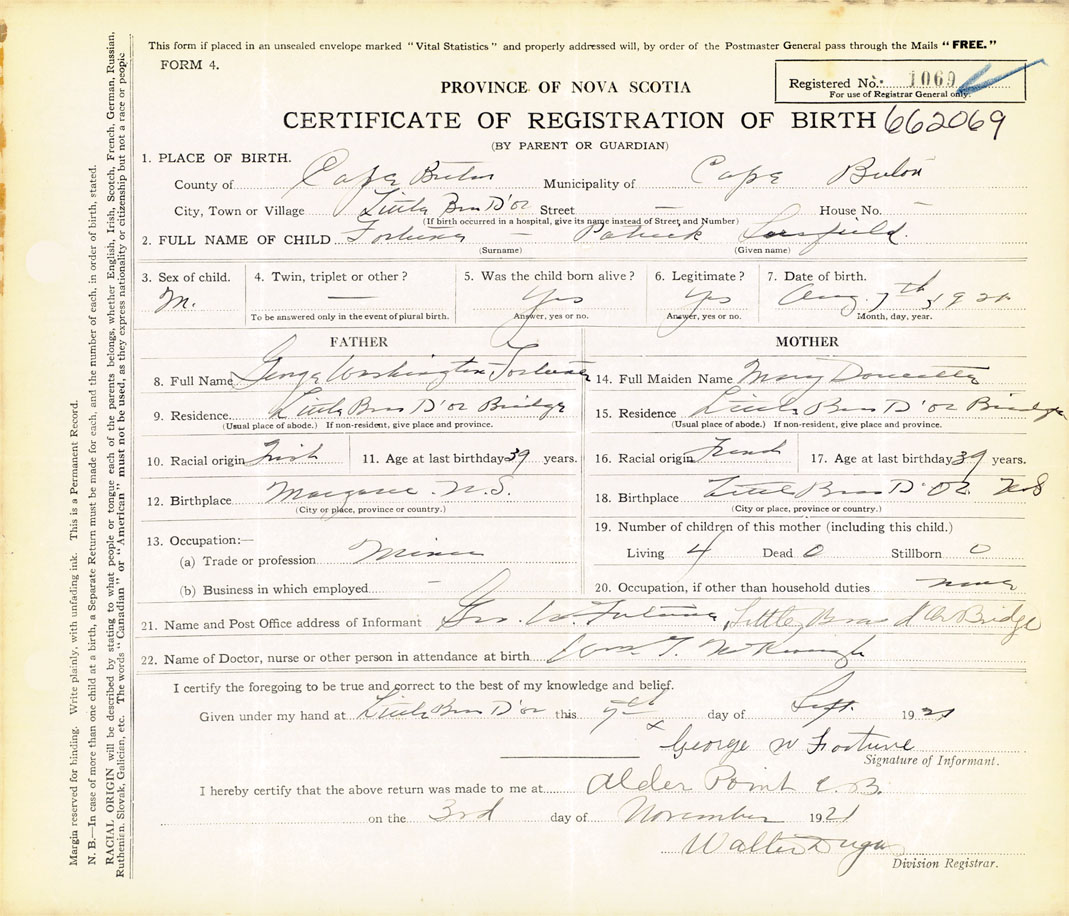 This form if placed in an unsealed envelope marked "Vital Statistics" and properly addressed will, by order of the Postmaster General pass through the Mails "FREE."
FORM 4.
Registered No. 1069
For use of Registrar General only.
PROVINCE OF NOVA SCOTIA
CERTIFICATE OF REGISTRATION OF BIRTH 662069
(BY PARENT OR GUARDIAN)
1. PLACE OF BIRTH.
County of Cape Breton Municipality of Cape Breton
City, Town or Village Little Bras D'or Street — House No. —
(If birth occurred in a hospital, give its name instead of Street and Number)
2. FULL NAME OF CHILD Fortune - Patrick Sarsfield.
(Surname) (Given name)
3. Sex of child. 4. Twin, triplet or other? 5. Was the child born alive? 6. Legitimate? 7. Date of birth.
M. — Yes Yes Aug. 7th, 1921
To be answered only in the event of plural birth. Answer, yes or no. Answer, yes or no. Month, day, year.
FATHER
8. Full Name George Washington Fortune
9. Residence Little Bras D'or Bridge
(Usual place of abode.) If non-resident, give place and province.
10. Racial origin Irish 11. Age at last birthday 39 years.
12. Birthplace Margaree N.S.
(City or place, province or country.)
13. Occupation:—
(a) Trade or profession Miner
(b) Business in which employed —
MOTHER
14. Full Maiden Name Mary Doucette
15. Residence Little Bras D'or Bridge
(Usual place of abode.) If non-resident, give place and province.
16. Racial origin French 17. Age at last birthday 39 years.
18. Birthplace Little Bras D'Or N.S
(City or place, province or country.)
19. Number of children of this mother (including this child.)
Living 4 Dead 0 Stillborn 0
20. Occupation, if other than household duties none
21. Name and Post Office address of Informant Geo. W. Fortune, Little Bras d'Or Bridge
22. Name of Doctor, nurse or other person in attendance at birth
I certify the foregoing to be true and correct to the best of my knowledge and belief.
Given under my hand at Little Bras D'or this 7th day of Sept. 1921
x
George W Fortune
Signature of Informant.
I hereby certify that the above return was made to me at Alder Point C.B.
on the 3rd day of November 1921
Walter Dugan
Division Registrar.
Margin reserved for binding. Write plainly, with unfading ink. This is a Permanent Record.
N. B.—In case of more than one child at a birth, a Separate Return must be made for each, and the number of each, in order of birth, stated.
RACIAL ORIGIN will be described by stating to what people or tongue each of the parents belongs, whether English, Irish, Scotch, French, German, Russian,
Ruthenian, Slovak, Galician, etc. The words "Canadian" or "American" must not be used, as they express nationality or citizenship but not a race or people.